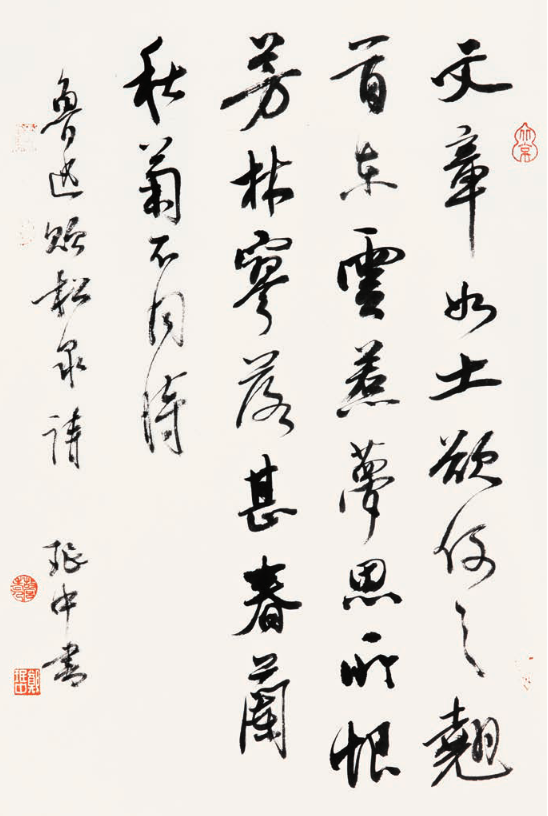 文章如土欲何之翹
首东雲惹夢思所恨
芳林寥落甚春蘭
秋菊不同時
魯迅贈松泉詩
珉中書
鄭珉中